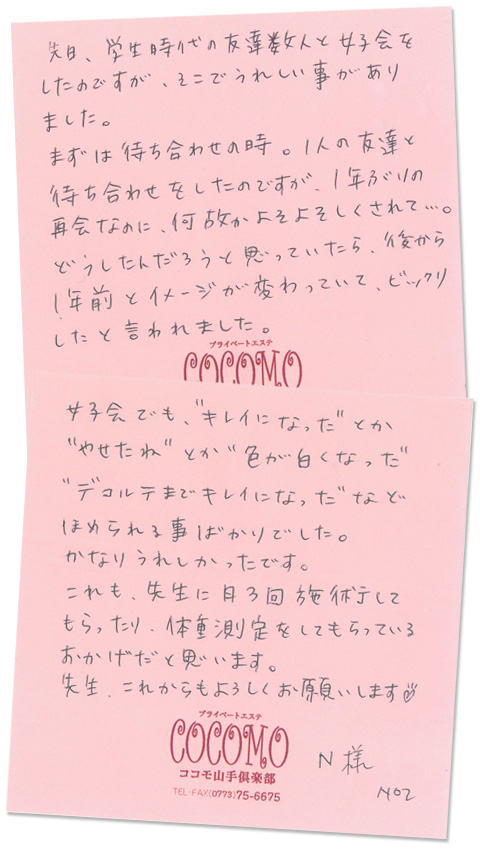 先日、学生時代の友達数人と女子会を
したのですが、そこでうれしい事があり
ました。
まずは待ち合わせの時。1人の友達と
待ち合わせをしたのですが、1年ぶりの
再会なのに、何故かよそよそしくされて…。
どうしたんだろうと思っていたら、後から
1年前とイメージが変わっていて、ビックリ
したと言われました。
プライベートエステ
COCOMO
女子会でも、"キレイになった"とか
"やせたね"とか"色が白くなった"
"デコルテまでキレイになった"など
ほめられる事ばかりでした。
かなりうれしかったです。
これも、先生に月3回施術して
もらったり、体重測定をしてもらっている
おかげだと思います。
先生、これからもよろしくお願いします♡
プライベートエステ
COCOMO
ココモ山手倶楽部
TEL・FAX(0773)75-6675
N様
No2